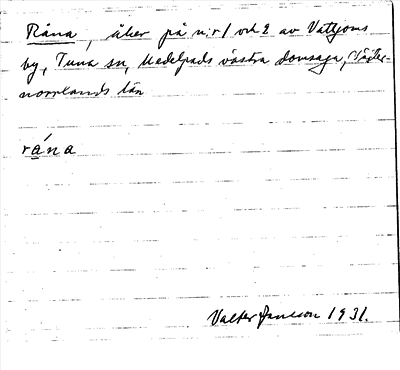 Råna, åker på nr 1 och 2 av Vattjoms
by, Tuna sn, Medelpads västra domsaga, Väster-
norrlands län
rána
Valter Jansson 1931.